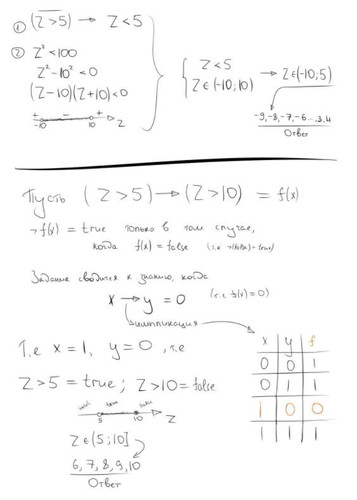 ① (Z>5) → Z<5
② Z²<100
Z²-10²<0
(Z-10)(Z+10)<0
+ - +
-10 10 Z
Z<5
Z∈(-10;10) → Z∈(-10;5)
-9,-8,-7,-6...3,4
Ответ
Пусть (Z>5)→(Z>10) = f(x)
¬f(x) = true только в том случае,
когда f(x) = false (т.к. ¬(false)=true)
Задание сводится к знанию, когда
x → y = 0 (т.е. f(x)=0)
импликация
Т.е x = 1, y = 0, т.е
Z>5 = true; Z>10 = false
5 10 Z
Z∈(5;10]
6, 7, 8, 9, 10
Ответ
x y f
0 0 1
0 1 1
1 0 0
1 1 1